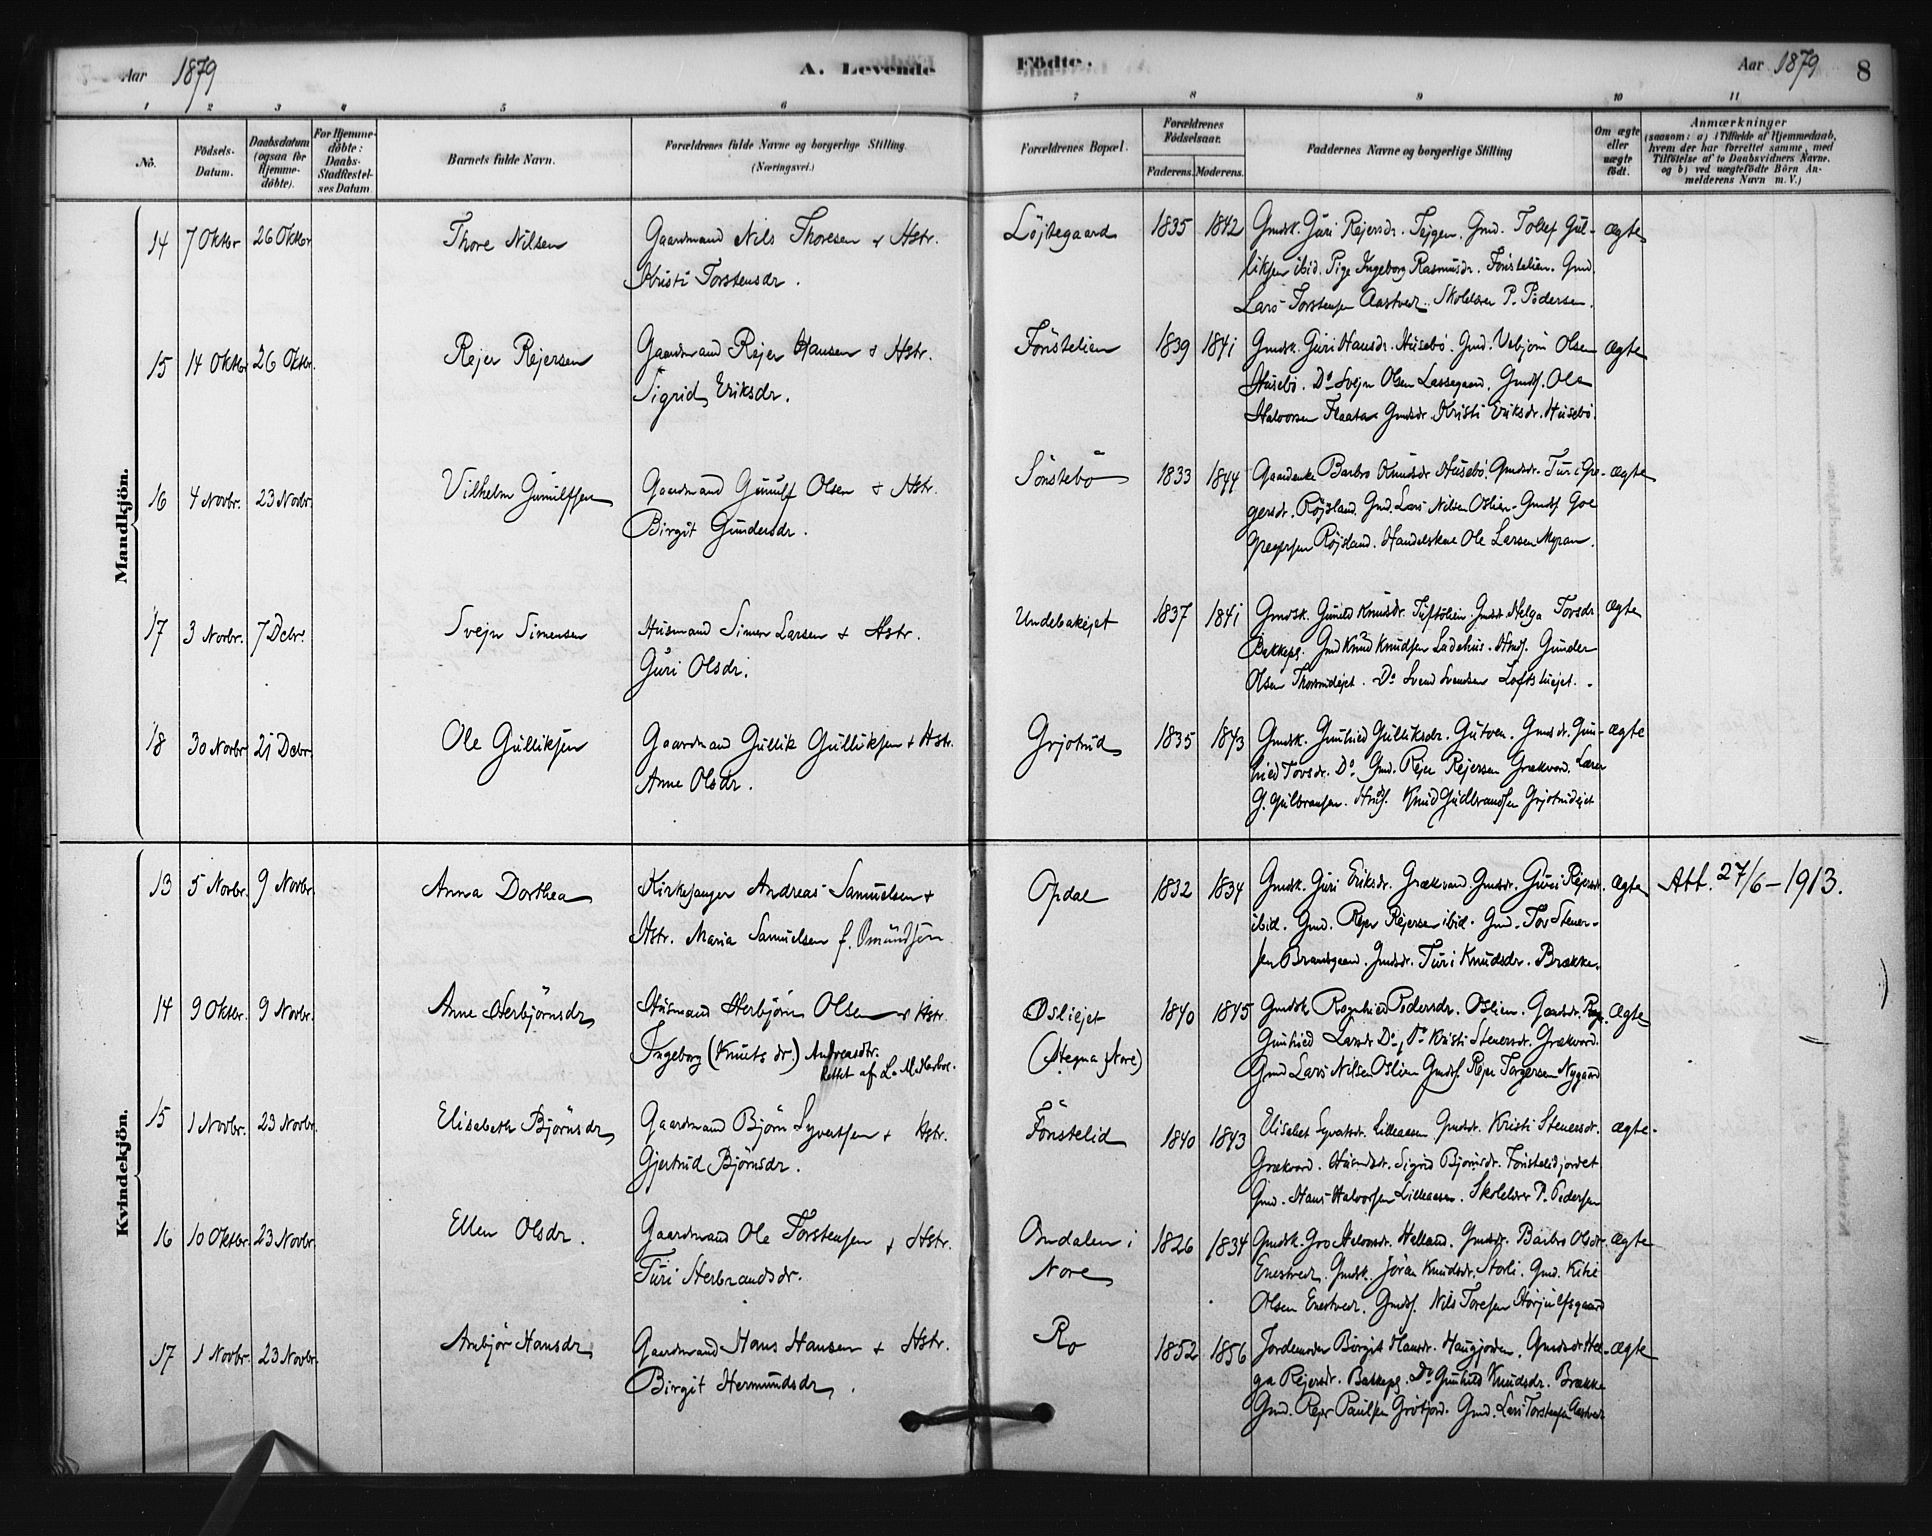 Aar 1879 A. Levende Födte. Aar 1879 8
1 2 3 4 5 6 7 8 9 10 11
No.
Födsels-Datum.
Daabsdatum (ogsaa for Hjemme-döbte).
For Hjemme-döbte: Daabs-Stadfæstel-ses Datum
Barnets fulde Navn.
Forældrenes fulde Navne og borgerlige Stilling (Næringsvei.)
Forældrenes Bopæl.
Forældrenes Födselsaar.
Faderens. Moderens.
Faddernes Navne og borgerlige Stilling
Om ægte eller uægte födt.
Anmærkninger
(saasom: a) i Tilfælde af Hjemmedaab,
hvem der har forrettet samme, med
Tilföielse af to Daabsvidners Navne.
og b) ved uægtefödte Börn An-
melderens Navn m. V.)
Mandkjön.
14 7 Oktbr 26 Oktbr Thore Nilsen Gaardmand Nils Thoresen & Hstr. Löjtegaard 1835 1842 Gmdsk. Guri Rejersdr. Tejgen. Gmd. Tollef Gul- ægte
Kristi Torstensdr. liksen ibid. Pige Ingeborg Rasmusdr. Fönstelien. Gmd.
Lars Torstensen Aastved. Skolelærer P. Pedersen.
15 14 Oktbr 26 Oktbr. Rejer Rejersen Gaardmand Rejer Hansen & Hstr. Fönstelien 1839 1841 Gmdsk. Guri Hansdr. Husebö. Gmd. Vebjörn Olsen ægte
Sigrid Eriksdr. Husebö. Do Svejn Olsen Lassegaard. Gmdsf. Ole
Halvorsen Flaata. Gmdsdr. Kristi Eriksdr. Husebö.
16 4 Novbr. 23 Novbr. Vilhelm Gunulfsen Gaardmand Gunulf Olsen & Hstr. Sönstebö 1833 1844 Gaardenke Barbro Knudsdr Husebö. Gmdsdr. Turi Gre- ægte
Birgit Gundersdr. gersdr. Röjsland. Gmd. Lars Nilsen Oslien. Gmdsf Goe
Gregersen Röjsland. Handelskar Ole Larsen Myran.
17 3 Novbr. 7 Debr. Svejn Simensen Husmand Simen Larsen & Hstr. Undebakejet 1837 1841 Gmdsk. Gunild Knudsdr. Tuftolien. Gmdsdr Helga Torsdr ægte
Guri Olsdr. Bakkepl. Gmd Knud Knudsen Ladehus. Hmdsf. Gunder
Olsen Thorsrudejet. Do Svend Svendsen Loftshuejet.
18 30 Novbr. 21 Debr. Ole Gulliksen Gaardmand Gullik Gulliksen & Hstr. Grjotrud 1835 1843 Gmdsk. Gunhild Gulliksdr. Gutven. Gmdsdr. Gun- ægte
Anne Olsdr. hild Torsdr. Do Gmd. Rejer Rejersen Grækvord. Lærer
G. Gulbransen. Hmdsf. Knud Gudbrandsen Grjotrudejet
Kvindekjön.
13 5 Novbr. 9 Novbr. Anna Dorthea Kirkesanger Andreas Samuelsen & Opdal 1832 1834 Gmdsk. Guri Eriksdr. Grækvord Gmdsdr. Guri Rejersdr. ægte Att. 27/6-1913.
Hstr. Maria Samuelsen f. Omundsen ibid. Gmd. Rejer Rejersen ibid. Gmd. Tor Stener-
sen Brandsgaard. Gmdsdr. Turi Knudsdr. Brække.
14 9 Oktbr. 9 Novbr. Anne Herbjörnsdr Husmand Herbjörn Olsen & Hstr. Osliejet 1840 1845 Gmdsk Ragnhild Pedersdr. Oslien. ægte
Ingeborg (Knuts dr.) Andreasdtr. (Hegna, Nore) Gunhild Larsdr Do, Do Kristi Stenersdr. Grækvord.
Rettet af Gmd Lars Nilsen Oslien Gmdsf. Rejer Torgersen Nygaard
15 1 Novbr. 23 Novbr. Elisabeth Björnsdr Gaardmand Björn Syvertsen & Hstr. Fönstelid 1840 1843 Elisabet Syvertsdr. Lilleaasen Gmdsdr. Kristi Stenersdr. ægte
Gjertrud Björnsdr. Grækvord. Husmdsdr. Sigrid Björnsdr. Fönstelidjordet
Gmd. Hans Halvorsen Lilleaasen. Skolelærer P. Pedersen
16 10 Oktbr. 23 Novbr. Ellen Olsdr. Gaardmand Ole Torstensen & Hstr. Omdalen i 1826 1834 Gmdsk. Gro Halvorsdr. Helland. Gmdsdr. Barbro Olsdr. ægte
Turi Herbrandsdr. Nore Enestved. Gmdsk. Jöran Knudsdr. Storli. Gmd. Kitil
Olsen Enestved. Gmdsf. Nils Toresen Horjulfsgaard
17 1 Novbr. 23 Novbr. Anbjör Hansdr Gaardmand Hans Hansen & Hstr. Ro 1852 1856 Jordemoder Börgit Hansdr. Haugjorden. Gmdsdr Hel- ægte
Birgit Hermundsdr. ga Rejersdr. Bakkepl. Do Gunhild Knudsdr. Brække
Gmd. Rejer Paulsen Grötjord. Gmd. Lars Torstensen Aastved